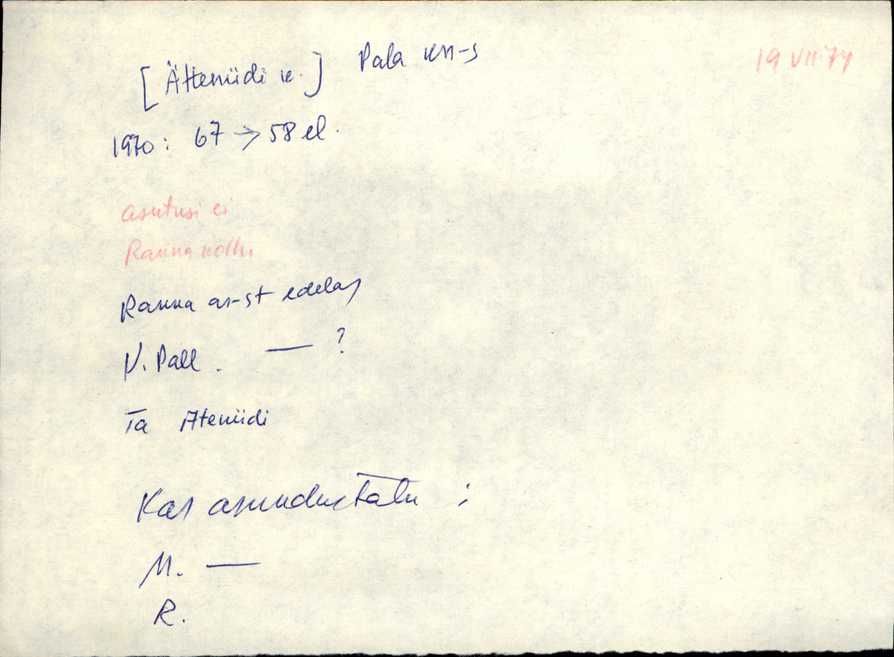 [Ätteniidi k.] Pala kn-s
19 VII 74
1970: 67 → 58 el.
asutusi ei
Ranna kolh.
Ranna as-st edelas
V. Pall. — ?
Ta Äteniidi
Kas asundustalu :
M. —
R.